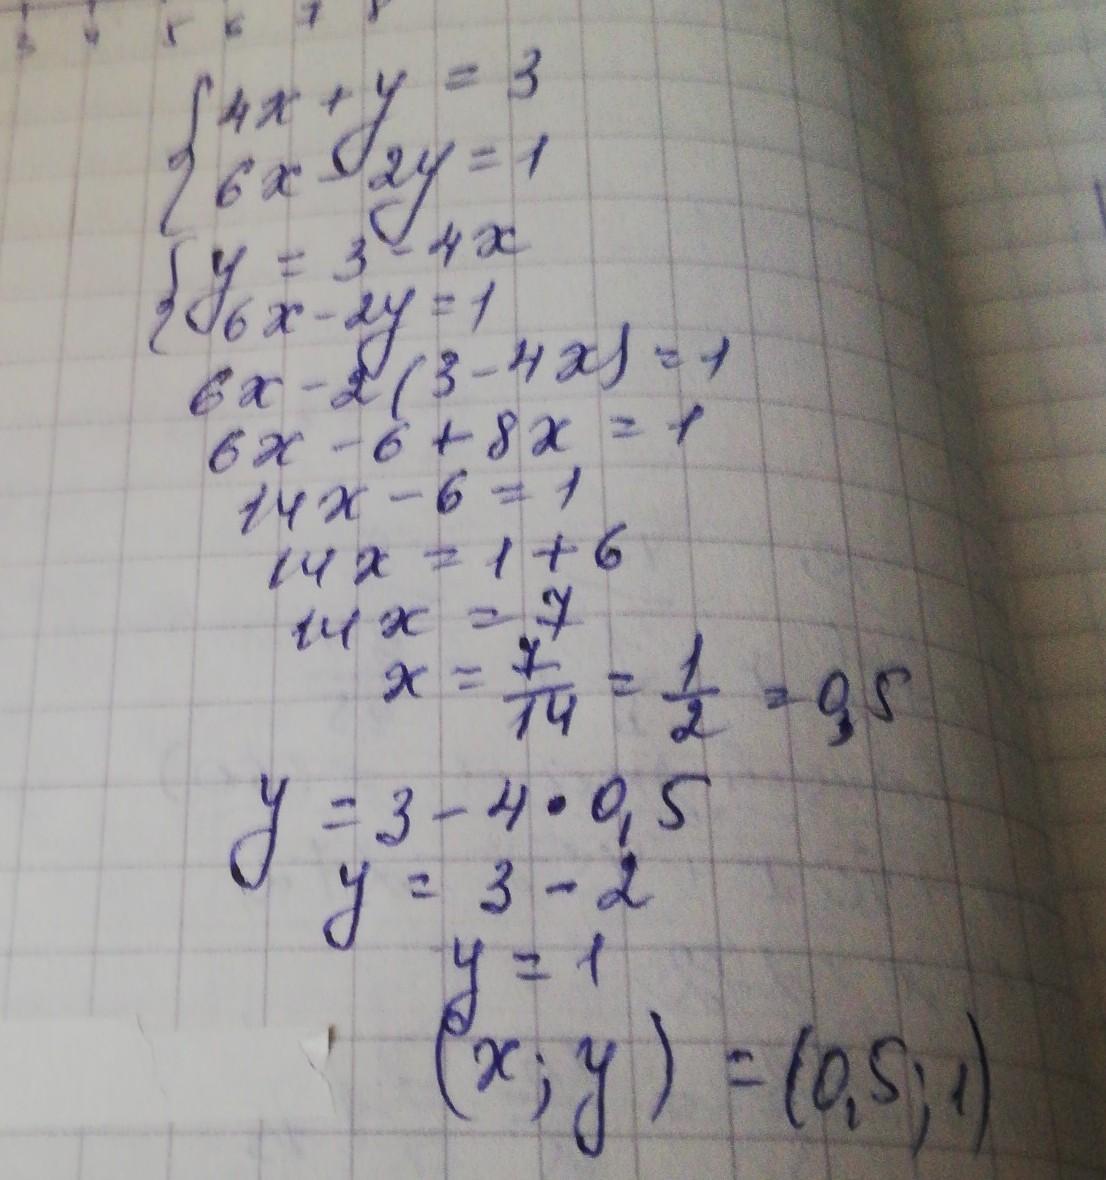 3 4 5 6 7 8
{4x + y = 3
{6x - 2y = 1
{y = 3 - 4x
{6x - 2y = 1
6x - 2(3 - 4x) = 1
6x - 6 + 8x = 1
14x - 6 = 1
14x = 1 + 6
14x = 7
x = 7/14 = 1/2 = 0,5
y = 3 - 4 • 0,5
y = 3 - 2
y = 1
(x; y) = (0,5; 1)